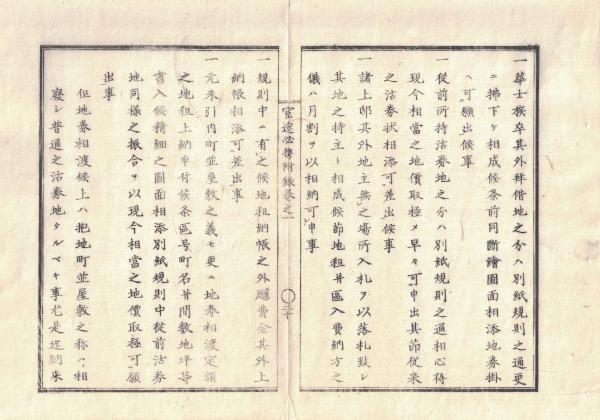 一華士族卒其外拜借地之分ハ別紙規則之通更
ニ拂下ケ相成候条前同断繪圖面相添地券掛
ヘ可願出候事
一從前所持沽券地之分ハ別紙規則之通相心得
現今相當之地價取極メ早々可申出其節従来
之沽券状相添可差出候事
一諸上邸其外地主無之場所入札ヲ以落札致シ
其地之持主ト相成候節地租并區入費納方之
儀ハ月割ヲ以相納可申事
官途必携附録巻之一
三十
一規則中ニ有之候地租納帳之外廳費金其外上
納帳相添可差出事
一元朱引内町並屋敷之義モ更ニ地券相渡定額
之地租上納申付候条區号町名并間數地坪等
書入候精細之圖面相添別紙規則中従前沽券
地同様之振合ヲ以現今相當之地價取極可願
出事
但地券相渡候上ハ拠地町並屋敷之称ハ相
廢シ普通之沽券地タルベキ事尤是迄納来